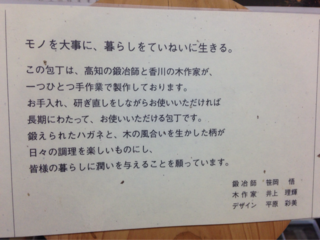 モノを大事に、暮らしをていねいに生きる。
この包丁は、高知の鍛冶師と香川の木作家が、
一つひとつ手作業で製作しております。
お手入れ、研ぎ直しをしながらお使いいただければ
長期にわたって、お使いいただける包丁です。
鍛えられたハガネと、木の風合いを生かした柄が
日々の調理を楽しいものにし、
皆様の暮らしに潤いを与えることを願っています。
鍛冶師 笹岡 悟
木作家 井上 理輝
デザイン 平原 彩美